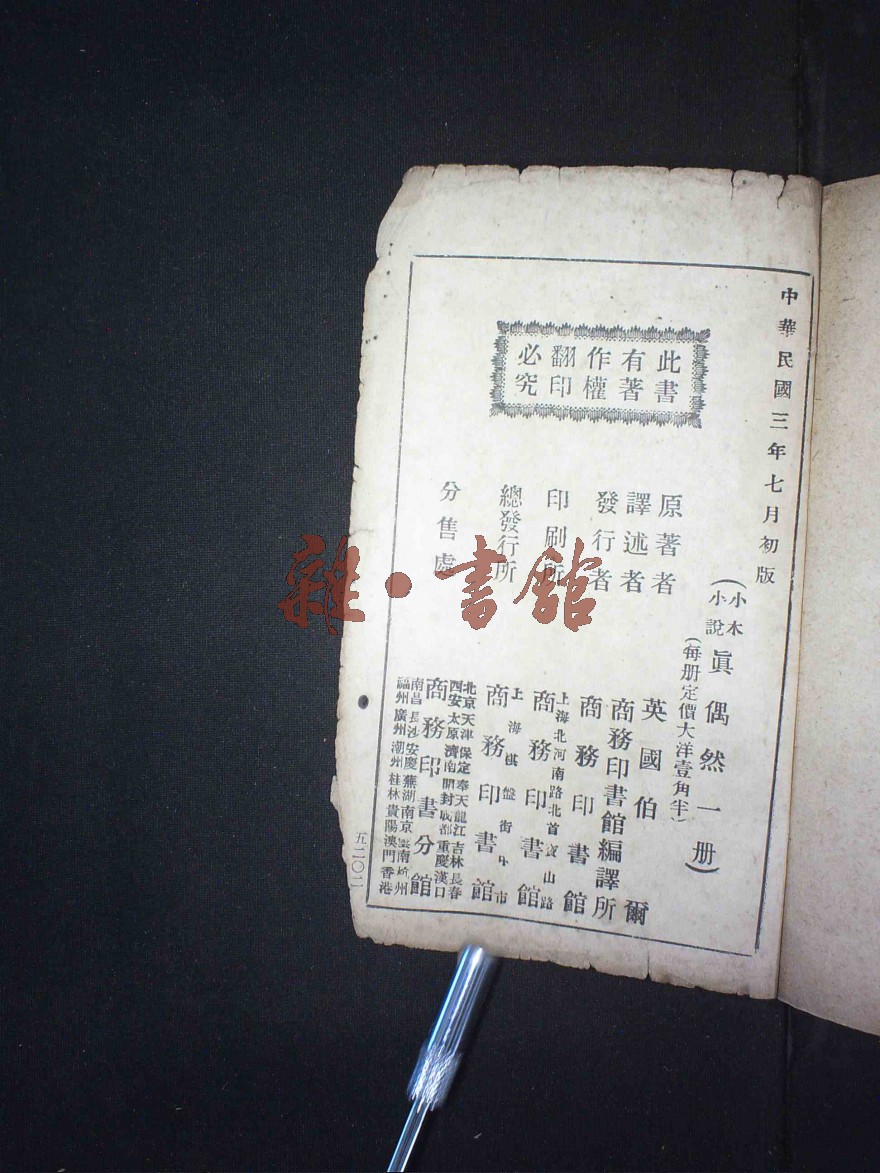 中華民國三年七月初版
此書
有著
作權
翻印
必究
(小本小說)眞偶然一册)
(每册定價大洋壹角半)
原著者 英國伯爾
譯述者 商務印書館編譯所
發行者 商務印書館
印刷所 上海北河南路北首寶山路
商務印書館
總發行所 上海棋盤街中市
商務印書館
分售處 北京天津保定奉天龍江吉林長春
西安太原濟南開封成都重慶漢口
商務印書分館
南昌長沙安慶蕪湖南京雲南杭州
福州廣州潮州桂林貴陽澳門香港
五二〇二
雜·書館